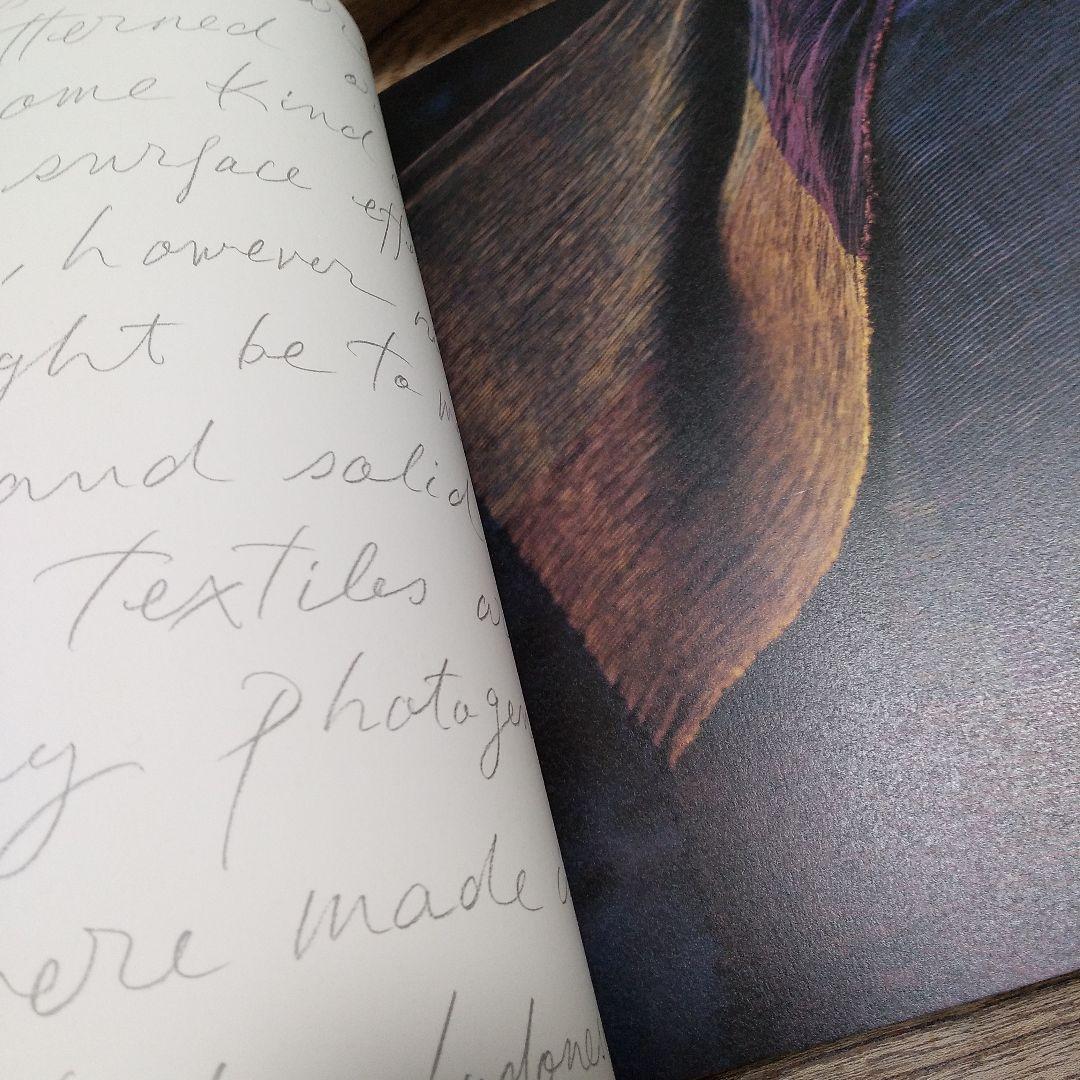 tterned
ome kind
surface eff
, however
ght be to
and solid
Textiles a
y photogen
ere made